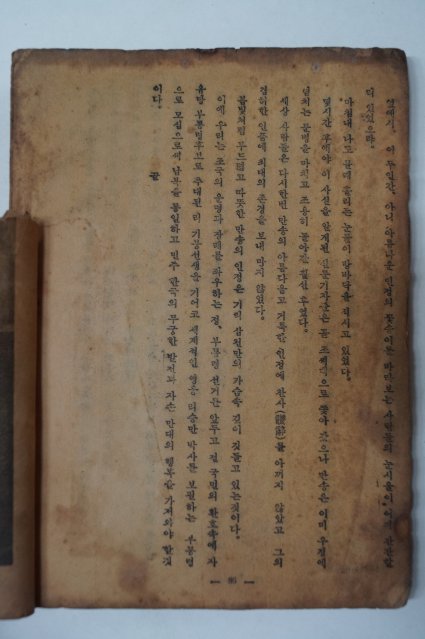 옆에서, 이 두 인간, 아니 아름다운 인정의 꽃송이를 바라보는 사람들의 눈시울이 어찌 잔잔할
리 있었으랴.
마침내 나고 눈에 흘리는 눈물이 땅바닥을 적시고 있었다.
몇시간 후에야 이 사실을 알게된 신문기자단은 곧 조 쪽으로 쫓아 갔으나 만송은 이미 우정에
넘치는 문병을 마치고 조용히 돌아간 훨신 후였다.
세상 사람들은 다시한번 만송의 아름다웁고 거룩한 인정에 찬사(讚辭)를 아끼지 않았고 그의
겸허한 인품에 최대의 존경을 보내 마지 않았다.
불빛처럼 부드럽고 따뜻한 만송의 인정은 기리 삼천만의 가슴속 깊이 깃들고 있는것이다.
이에 우리는 조국의 운명과 장래를 좌우하는 정, 부통령 선거를 앞두고 전 국민의 환호속에 자
유당 부통령후보로 추대된 리 기붕선생을 기어코 세계적인 영웅 리승만 박사를 보필하는 부통령
으로 모심으로써 남북을 통일하고 민주 한국의 무궁한 발전과 자손 만대의 행복을 가져와야 할것
이다.
끝
— 86 —